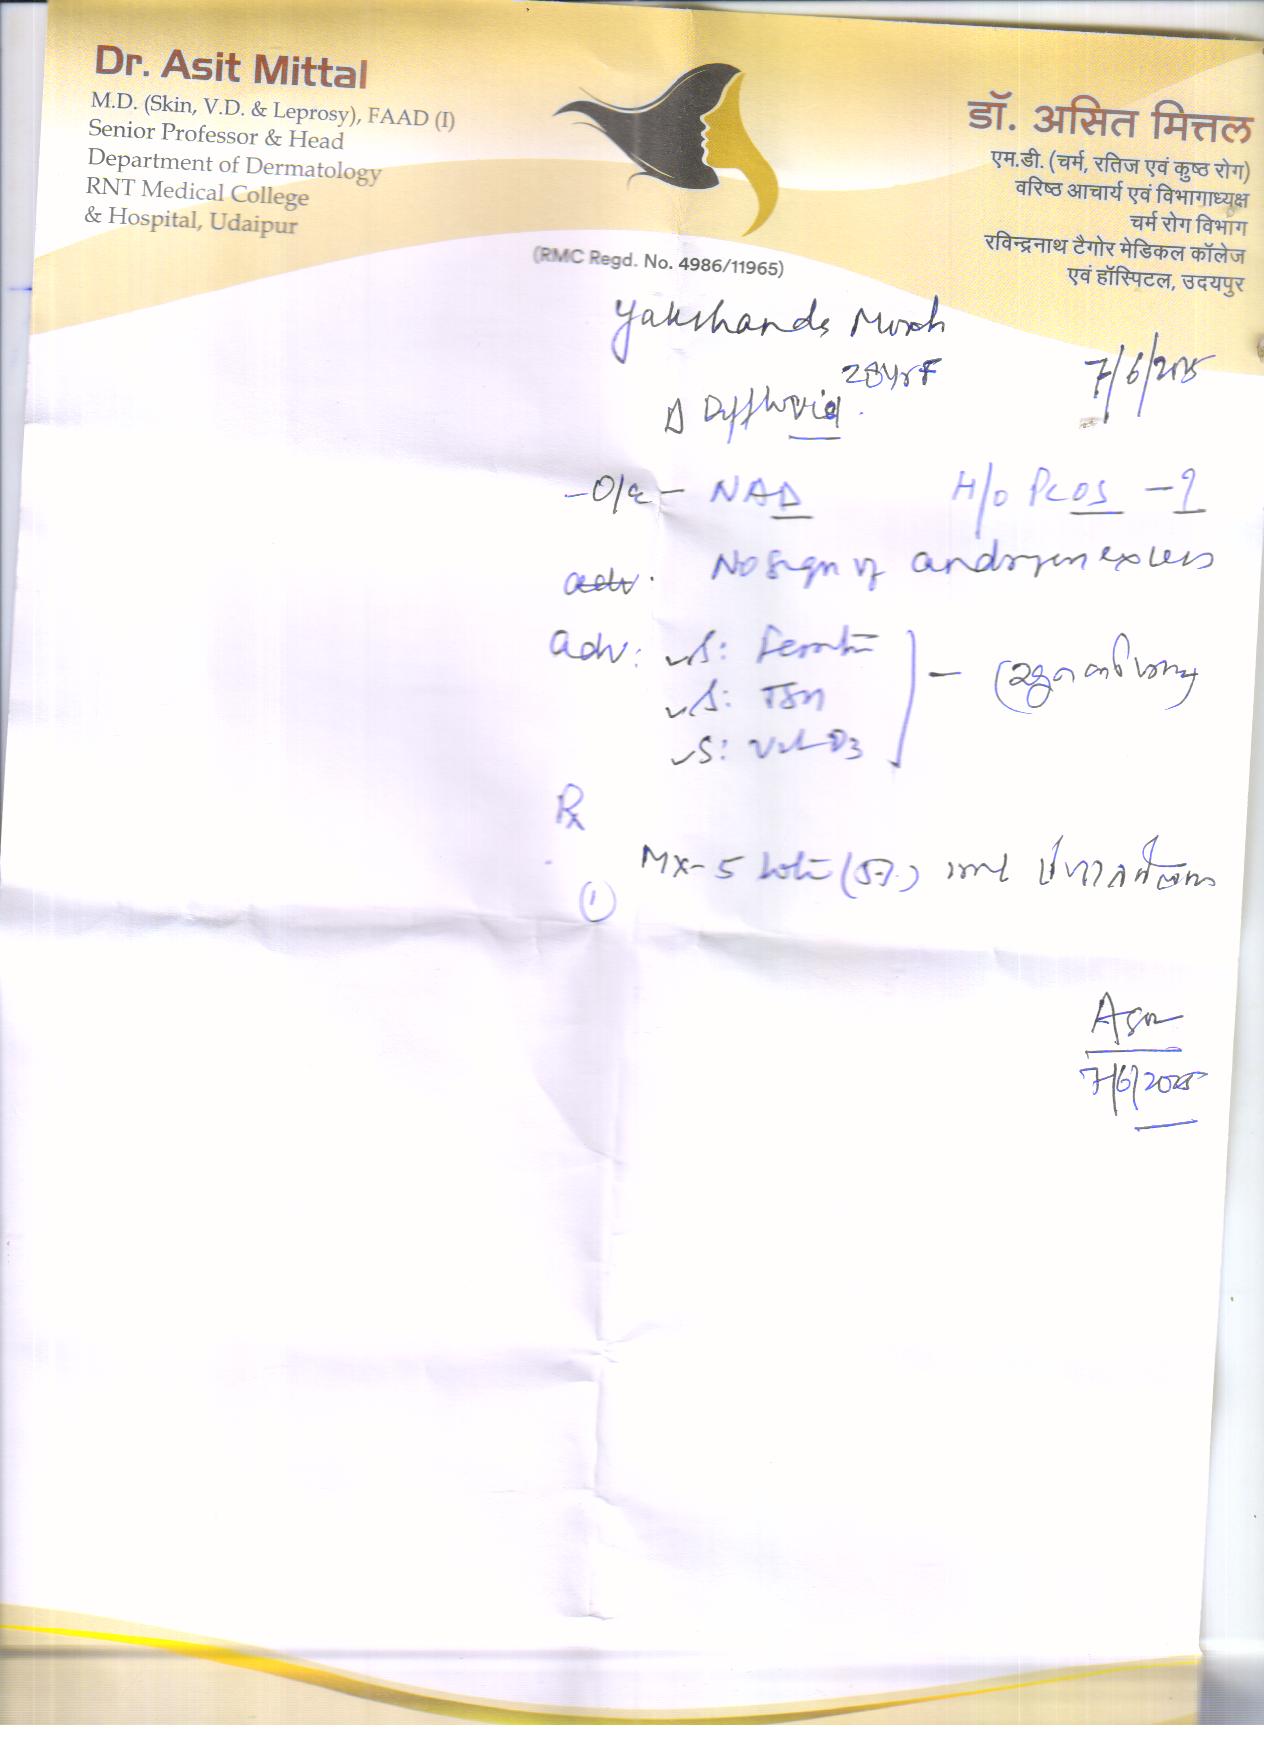 Dr. Asit Mittal
M.D. (Skin, V.D. & Leprosy), FAAD (I)
Senior Professor & Head
Department of Dermatology
RNT Medical College
& Hospital, Udaipur
(RMC Regd. No. 4986/11965)
डॉ. असित मित्तल
एम.डी. (चर्म, रतिज एवं कुष्ठ रोग)
वरिष्ठ आचार्य एवं विभागाध्यक्ष
चर्म रोग विभाग
रविन्द्रनाथ टैगोर मेडिकल कॉलेज
एवं हॉस्पिटल, उदयपुर
28 yr F
7/6/2025
- O/E - NAD H/o PCOS - ?
No sign of androgen excess
adv.
adv: S: Ferritin
S: TSH
S: Vit D3
Rx
① MX-5 (5%)
7/6/2025